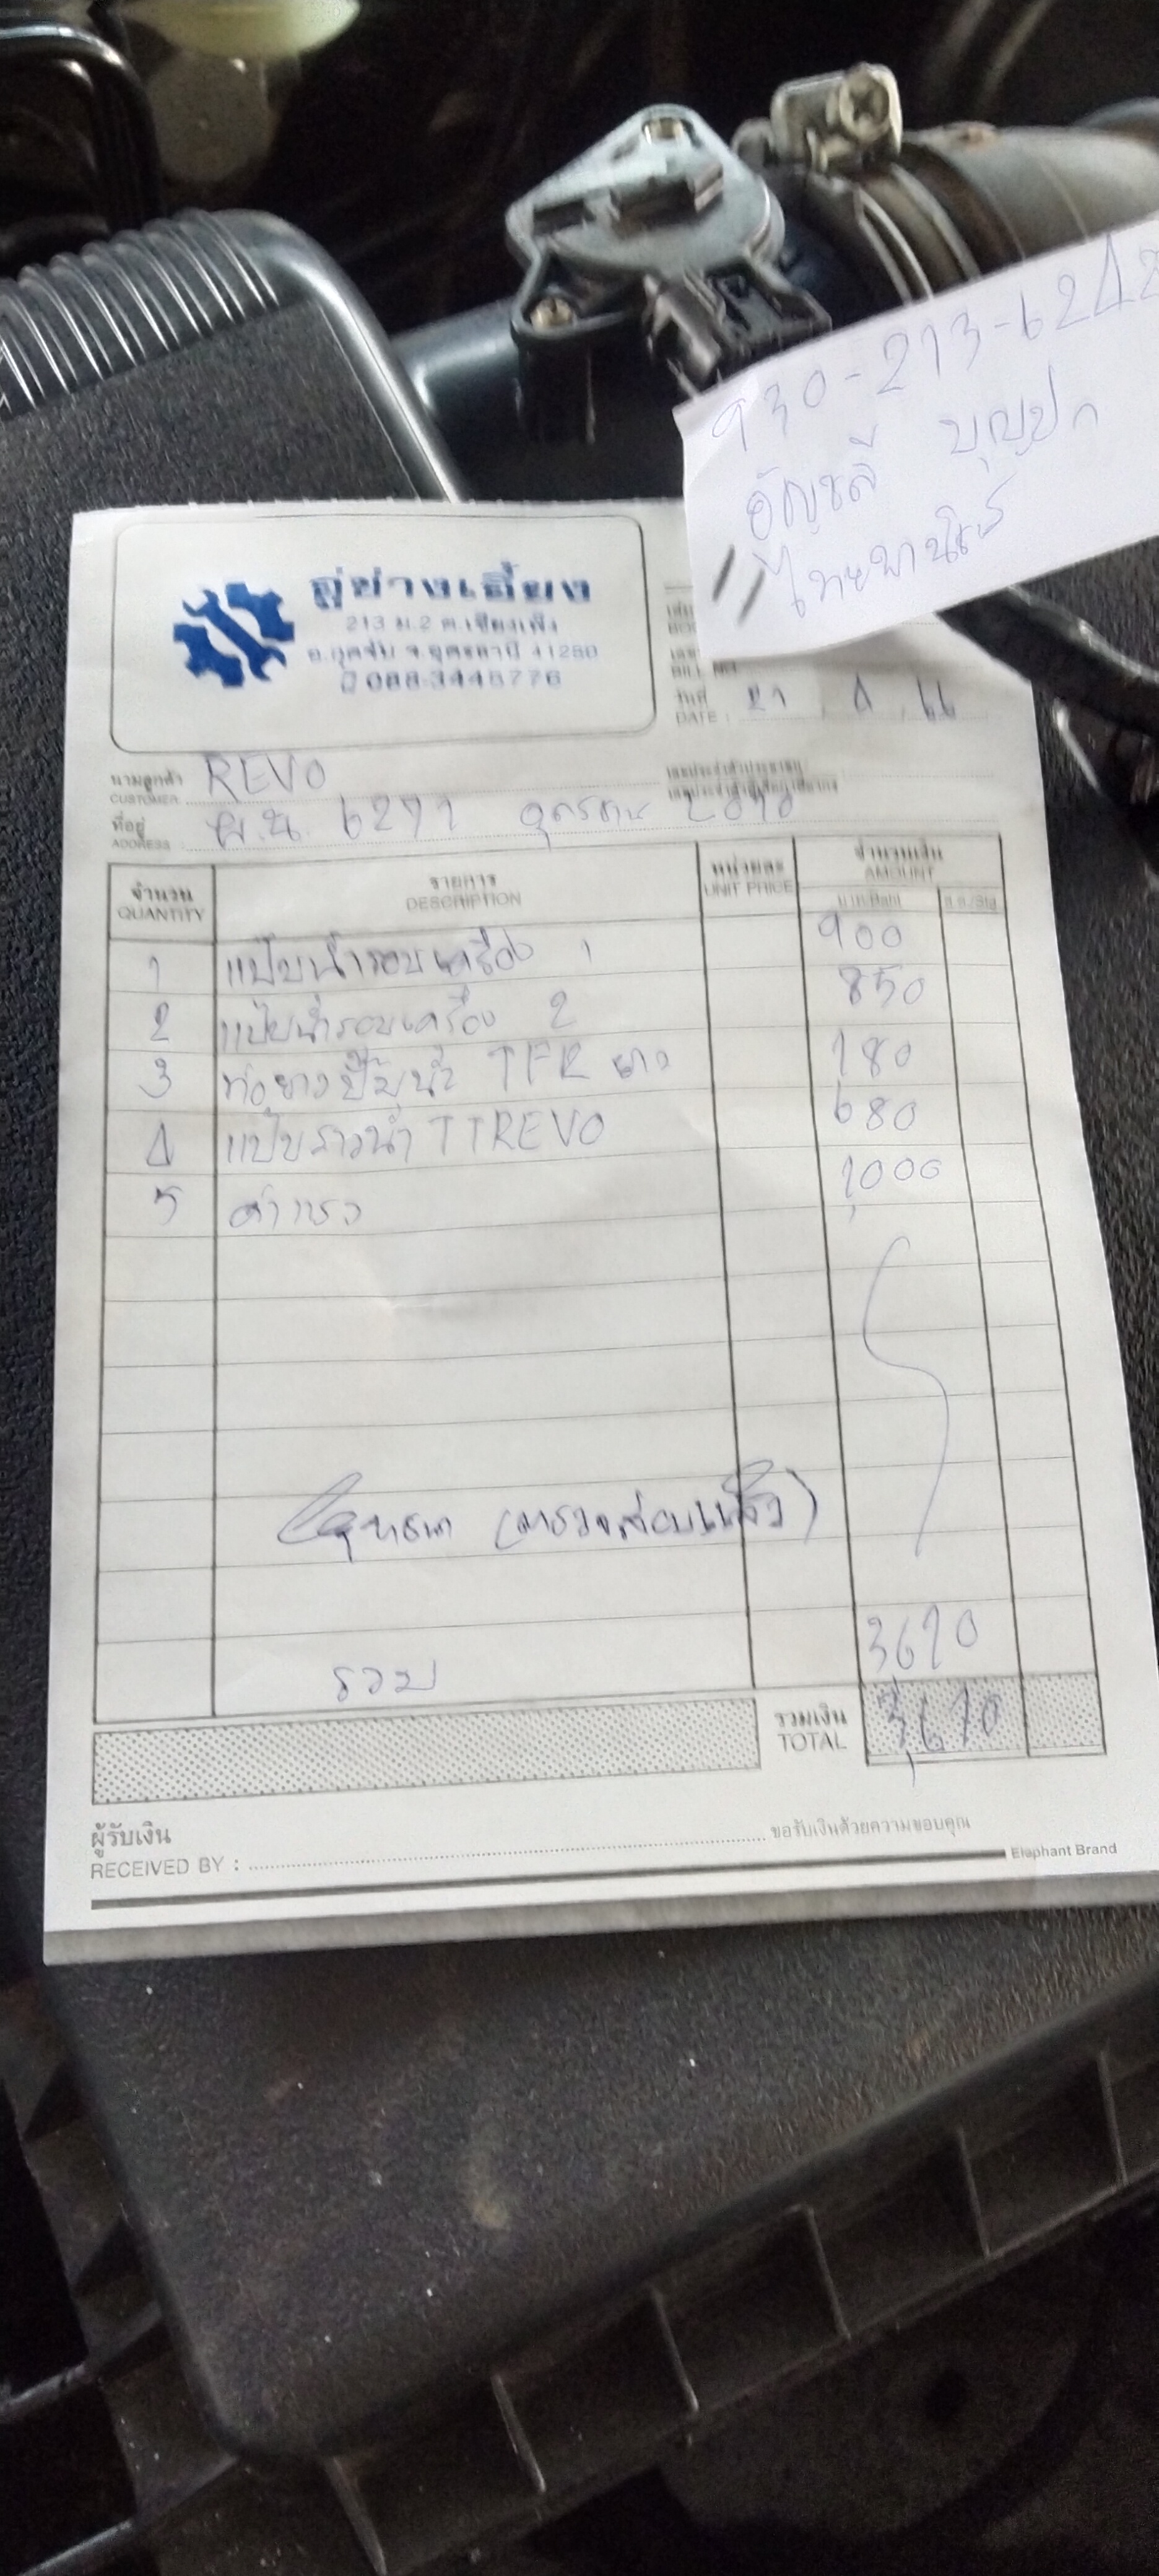 930-213-6242
อัญชลี บุญปก
ไทยพานิชย์
อู่ช่างเอี้ยง
213 ม.2 ต.เชียงเพ็ง
อ.กุดจับ จ.อุดรธานี 41250
088-3448776
BILL NO.
วันที่ 21 4 66
DATE :
นามลูกค้า REVO
CUSTOMER
ที่อยู่ ผ.น. 6271 อุดรธานี
ADDRESS :
จำนวน รายการ หน่วยละ จำนวนเงิน
QUANTITY DESCRIPTION UNIT PRICE AMOUNT
บาท/Baht ส.ต./Stg.
1 แป๊บน้ำรอบเครื่อง 1 900
2 แป๊บน้ำรอบเครื่อง 2 850
3 ท่อยางปั๊มน้ำ TFR ยาว 180
4 แป๊บราวน้ำ TTREVO 680
5 ค่าแรง 1,000
(ตรวจสอบแล้ว)
รวม 3610
รวมเงิน 3,610
TOTAL
ผู้รับเงิน ขอรับเงินด้วยความขอบคุณ
RECEIVED BY : Elephant Brand